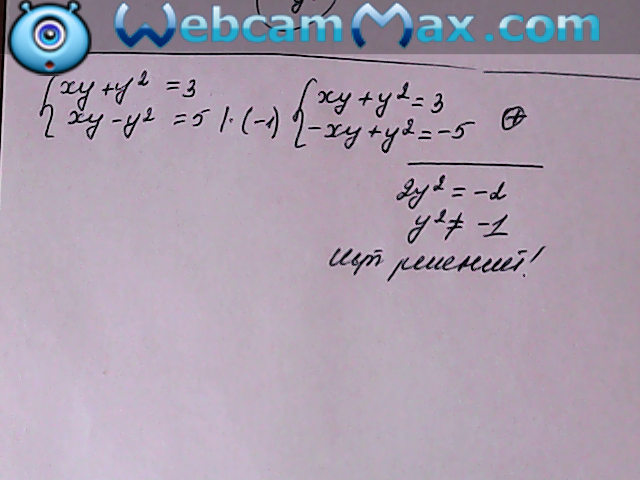 WebcamMax.com
{xy + y² = 3
{xy - y² = 5 | · (-1)
{xy + y² = 3
{-xy + y² = -5 ⊕
2y² = -2
y² ≠ -1
Нет решений!